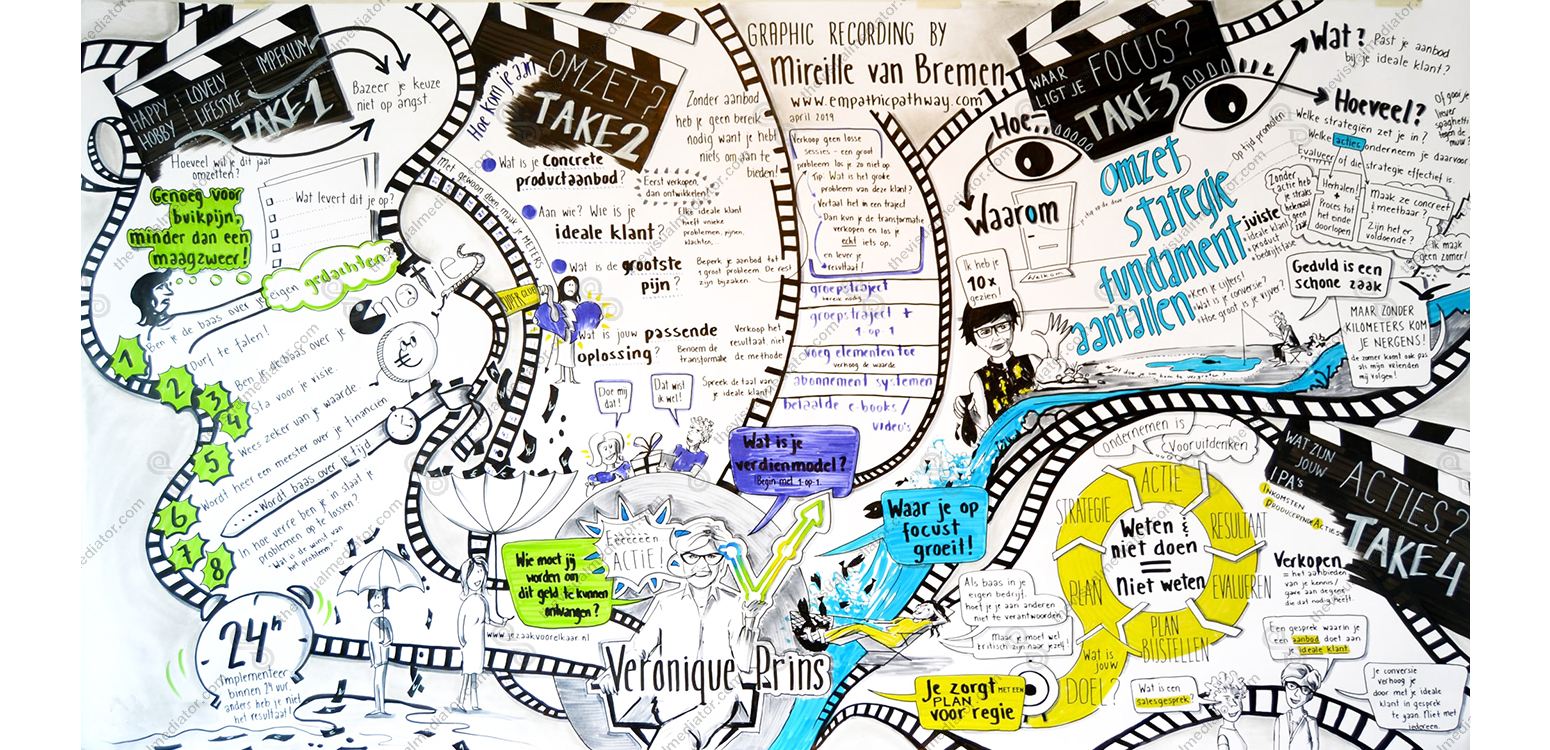 GRAPHIC RECORDING BY
Mireille van Bremen
www.empathicpathway.com
april 2019
HAPPY HOBBY
LOVELY LIFESTYLE
IMPERIUM
TAKE 1
Bazeer je keuze
niet op angst.
Hoeveel wil je dit jaar
omzetten?
Genoeg voor
buikpijn,
minder dan een
maagzweer!
Wat levert dit je op?
Ben je de baas over je eigen gedachten?
1
Durf te falen!
2
Ben je de baas over je
3
Sta voor je visie.
4
Wees zeker van je waarde
5
Wordt heer een meester over je financien
6
... Wordt baas over je tijd
7
In hoe verre ben je in staat je
problemen op te lossen?
"Wat is de winst van
het probleem?"
8
24h
Implementeer
binnen 24 uur,
anders heb je niet
het resultaat!
Hoe kom je aan
OMZET?
TAKE 2
Zonder aanbod
heb je geen bereik
nodig want je hebt
niets om aan te
bieden!
Met gewoon doen, maak je METERS
Wat is je Concrete
productaanbod?
Eerst verkopen,
dan ontwikkelen!
Aan wie? Wie is je
ideale klant?
Elke ideale klant
heeft unieke
problemen, pijnen,
klachten,
Wat is de grootste
pijn?
Beperk je aanbod tot
1 groot probleem. De rest
zijn bijzaken.
Wat is jouw passende
oplossing?
Verkoop het
resultaat, niet
de methode.
Benoem de
transformatie
Doe mij
dat!
Dat wist
ik wel!
Spreek de taal van
je ideale klant!
Verkoop geen losse
sessies - een groot
probleem los je zo niet op
Tip: Wat is het grote
probleem van deze klant?
Vertaal het in een traject
Dan kun je de transformatie
verkopen en los je
echt iets op,
en lever je
resultaat!
groepstraject
bereik nodig
groepstraject +
1-op-1
voeg elementen toe
verhoog de waarde
abonnement systemen
betaalde e-books/
video's
Wat is je
verdienmodel?
Begin met 1-op-1.
Wie moet jij
worden om
dit geld te kunnen
ontvangen?
www.jezaakvoorelkaar.nl
ACTIE!
Veronique Prins
Waar je op
focust
groeit!
WAAR
LIGT JE
FOCUS?
TAKE 3
Hoe..
Waarom
Welkom
Wat?
Past je aanbod
bij je ideale klant?
Hoeveel?
Of gooi je
liever
spaghetti
tegen de
muur?
Welke strategiën zet je in?
Welke acties onderneem je daarvoor
Evalueer of die strategie effectief is.
Op tijd promoten
Zonder
actie heb
je straks
helemaal
geen
Herhalen!
+
Proces tot
het einde
doorlopen
Maak ze concreet
& meetbaar?
Zijn het er
voldoende?
Ik maak
geen zomer!
omzet
stategie
fundament
aantallen
juiste
ideale klant
product
bedrijfsfase
Ken je cijfers!
Wat is je conversie?
Hoe groot is je vijver?
Geduld is een
schone zaak
MAAR ZONDER
KILOMETERS KOM
JE NERGENS!
de zomer komt ook pas
als mijn vrienden
mij volgen!
Ik heb je
10x
gezien!
WAT ZIJN
JOUW
I.P.A's
INKOMSTEN
PRODUCERENDE ACTIES
ACTIES?
TAKE 4
ondernemen is
Vooruitdenken
ACTIE
RESULTAAT
EVALUEREN
PLAN
BIJSTELLEN
Wat is
jouw
DOEL?
PLAN
STRATEGIE
Weten &
niet doen
=
Niet weten
Verkopen
= het aanbieden
van je kennis/
gave aan degene
die dat nog heeft.
Een gesprek waarin je
een aanbod doet aan
je ideale klant
Wat is een
salesgesprek?
Je conversie
verhoog je
door met je ideale
klant in gesprek
te gaan. Niet met
iedereen.
Als baas in je
eigen bedrijf,
hoef je je aan anderen
niet te verantwoorden
Maar je moet wel
kritisch zijn naar jezelf!
Je zorgt
MET EEN
PLAN
voor regie
thevisualmediator.com